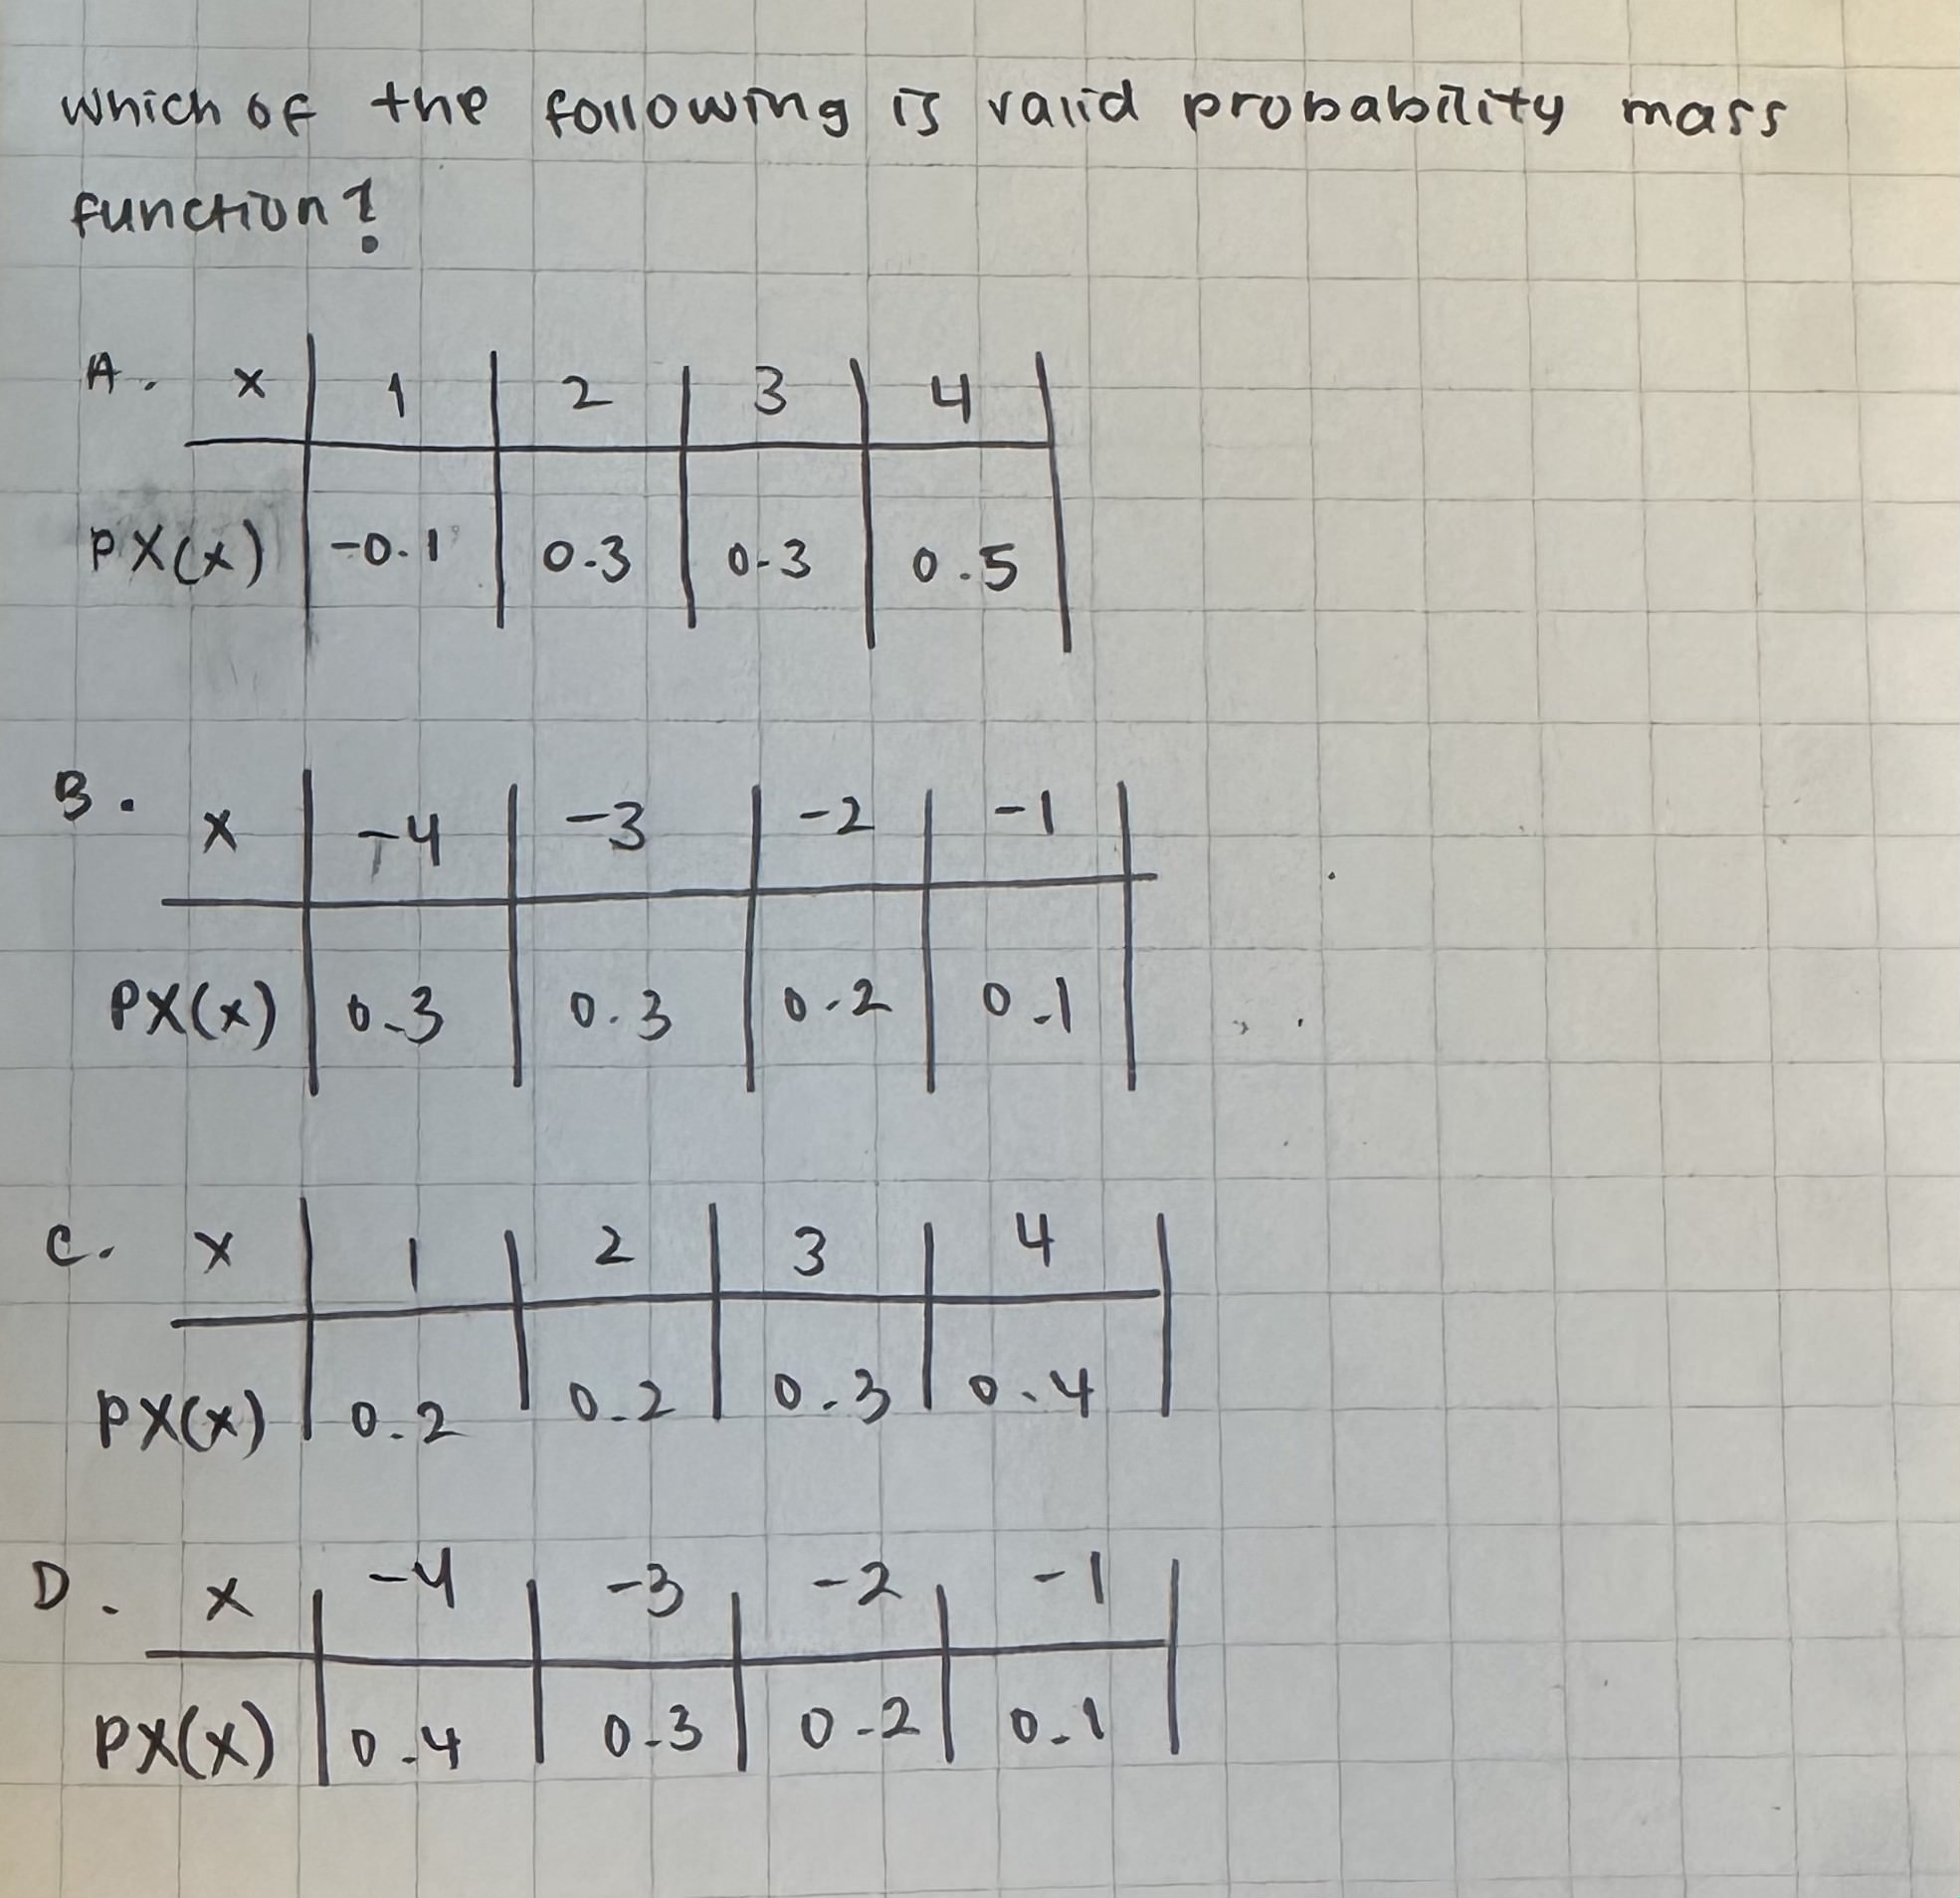 which of the following is valid probability mass
function?
A. x | 1 | 2 | 3 | 4 |
PX(x) | -0.1 | 0.3 | 0.3 | 0.5 |
B. x | -4 | -3 | -2 | -1 |
PX(x) | 0.3 | 0.3 | 0.2 | 0.1 |
C. x | 1 | 2 | 3 | 4 |
PX(x) | 0.2 | 0.2 | 0.3 | 0.4 |
D. x | -4 | -3 | -2 | -1 |
PX(x) | 0.4 | 0.3 | 0.2 | 0.1 |